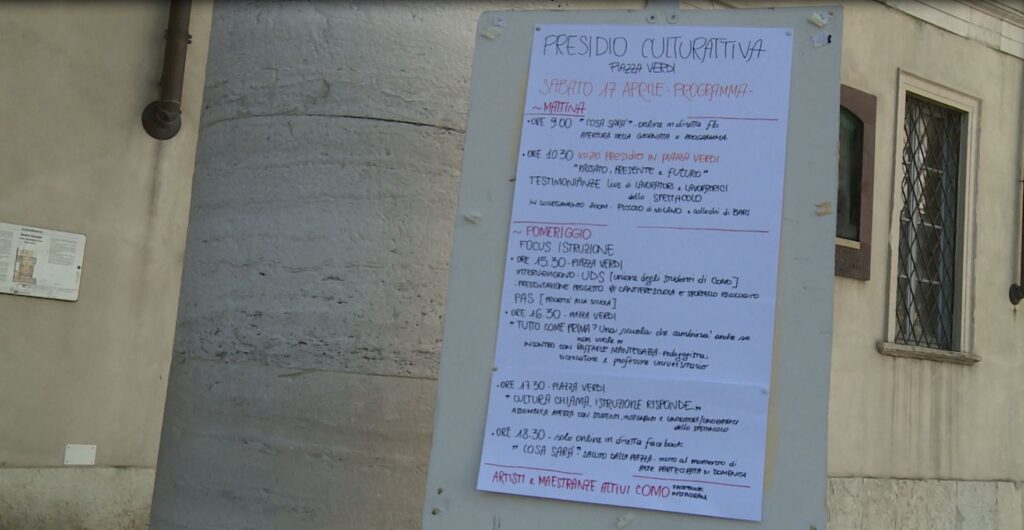 PRESIDIO CULTURATTIVA
PIAZZA VERDI
SABATO 17 APRILE - PROGRAMMA -
~ MATTINA
• ORE 9.00 "COSA SARÀ" - online in diretta fb
APERTURA DELLA GIORNATA e PROGRAMMA
• ORE 10.30 INIZIO PRESIDIO IN PIAZZA VERDI
"PASSATO, PRESENTE e FUTURO"
TESTIMONIANZE live di LAVORATORI e LAVORATRICI
dello SPETTACOLO
IN COLLEGAMENTO ZOOM - PICCOLO di MILANO e colleghi di BARI
~ POMERIGGIO
FOCUS ISTRUZIONE
• ORE 15.30 - PIAZZA VERDI
INTERVENGONO: UDS [unione degli studenti di COMO]
- PRESENTAZIONE PROGETTO # CANTIERESCUOLA E SPORTELLO PSICOLOGICO
PAS [PRIORITÀ ALLA SCUOLA]
• ORE 16.30 - PIAZZA VERDI
"TUTTO COME PRIMA? Una scuola che cambierà anche se
non vuole"
INCONTRO CON RAFFAELE MANTEGAZZA - pedagogista,
ricercatore e professore universitario
• ORE 17.30 - PIAZZA VERDI
"CULTURA CHIAMA, ISTRUZIONE RISPONDE..."
ASSEMBLEA APERTA CON STUDENTI, INSEGNANTI e LAVORATORI/LAVORATRICI
dello SPETTACOLO
• ORE 18.30 - solo online in diretta facebook
"COSA SARÀ" - SALUTO DALLA PIAZZA - invito al momento di
ARTE PARTECIPATA DI DOMENICA
ARTISTI e MAESTRANZE ATTIVI COMO FACEBOOK
INSTAGRAM